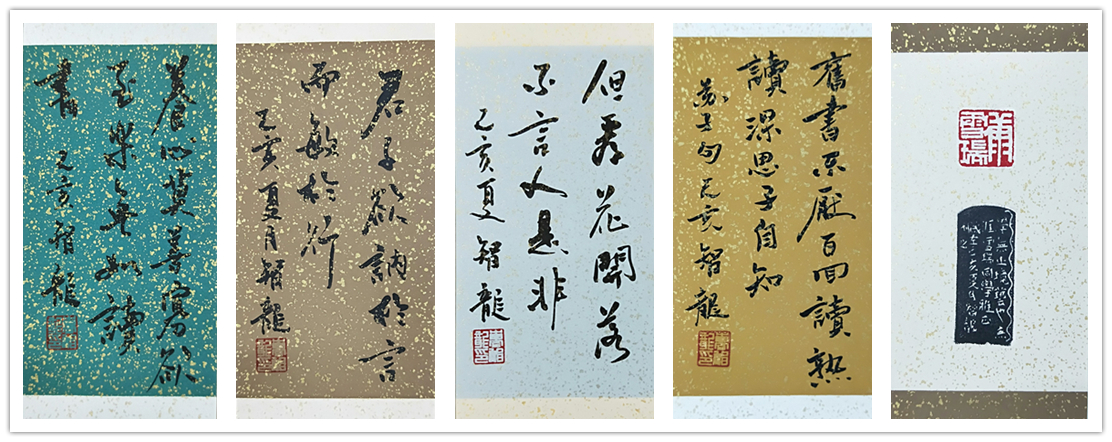 養心莫善寡欲
至樂無如讀
書 己亥智龍
君子欲訥於言
而敏於行
己亥夏月智龍
但看花開落
不言人是非
己亥夏智龍
舊書不厭百回讀熟
讀深思子自知
蘇子句己亥智龍